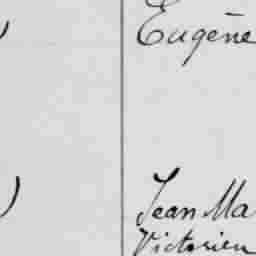 Eugène
Jean Ma
Victorien